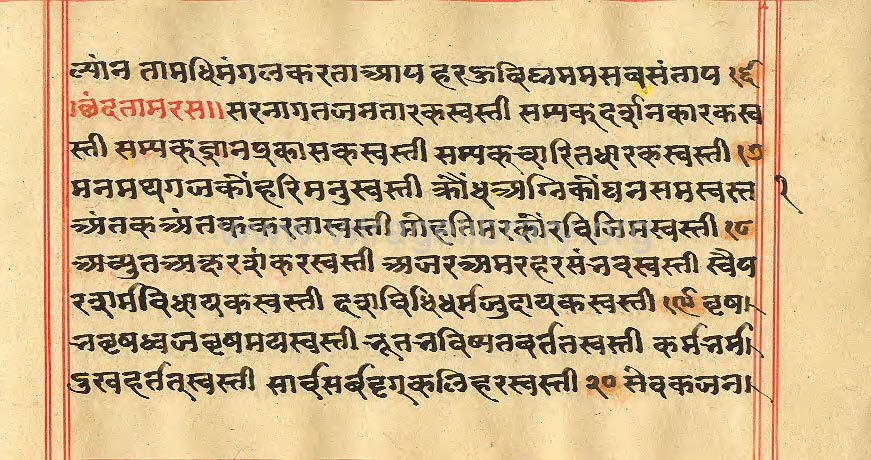 ल्यांन तामधिमंगलकरता आप हरऊविघ्नममसबसंताप १६
।छंदतामरस।। सरनागतजनतारकस्वस्ती सम्यकदर्शनकारकस्व
स्ती सम्यकज्ञानप्रकासकस्वस्ती सम्यकचारितधारकस्वस्ती १७
मनमथगजकौंहरिमनुस्वस्ती क्रौंधअग्निकौंघनसमस्वस्त १
अंतकअंतककरतास्वस्ती मोहतिमरकौंरविजिमस्वस्ती १८
अच्युतअक्षरशंकरस्वस्ती अजरअमरहरसंनवस्वस्ती स्वैप
रशर्मविधायकस्वस्ती दशविधिधर्मजुदायकस्वस्ती १९ वृषा।
नवृषध्वजवृषमयस्वस्ती नूतनविष्यतवर्ततस्वस्ती कर्मनर्मा।
दुखहर्ततस्वस्ती सार्वसर्वदृगकलिहरस्वस्ती २० सेवकजन।
www.vitragelibrary.org